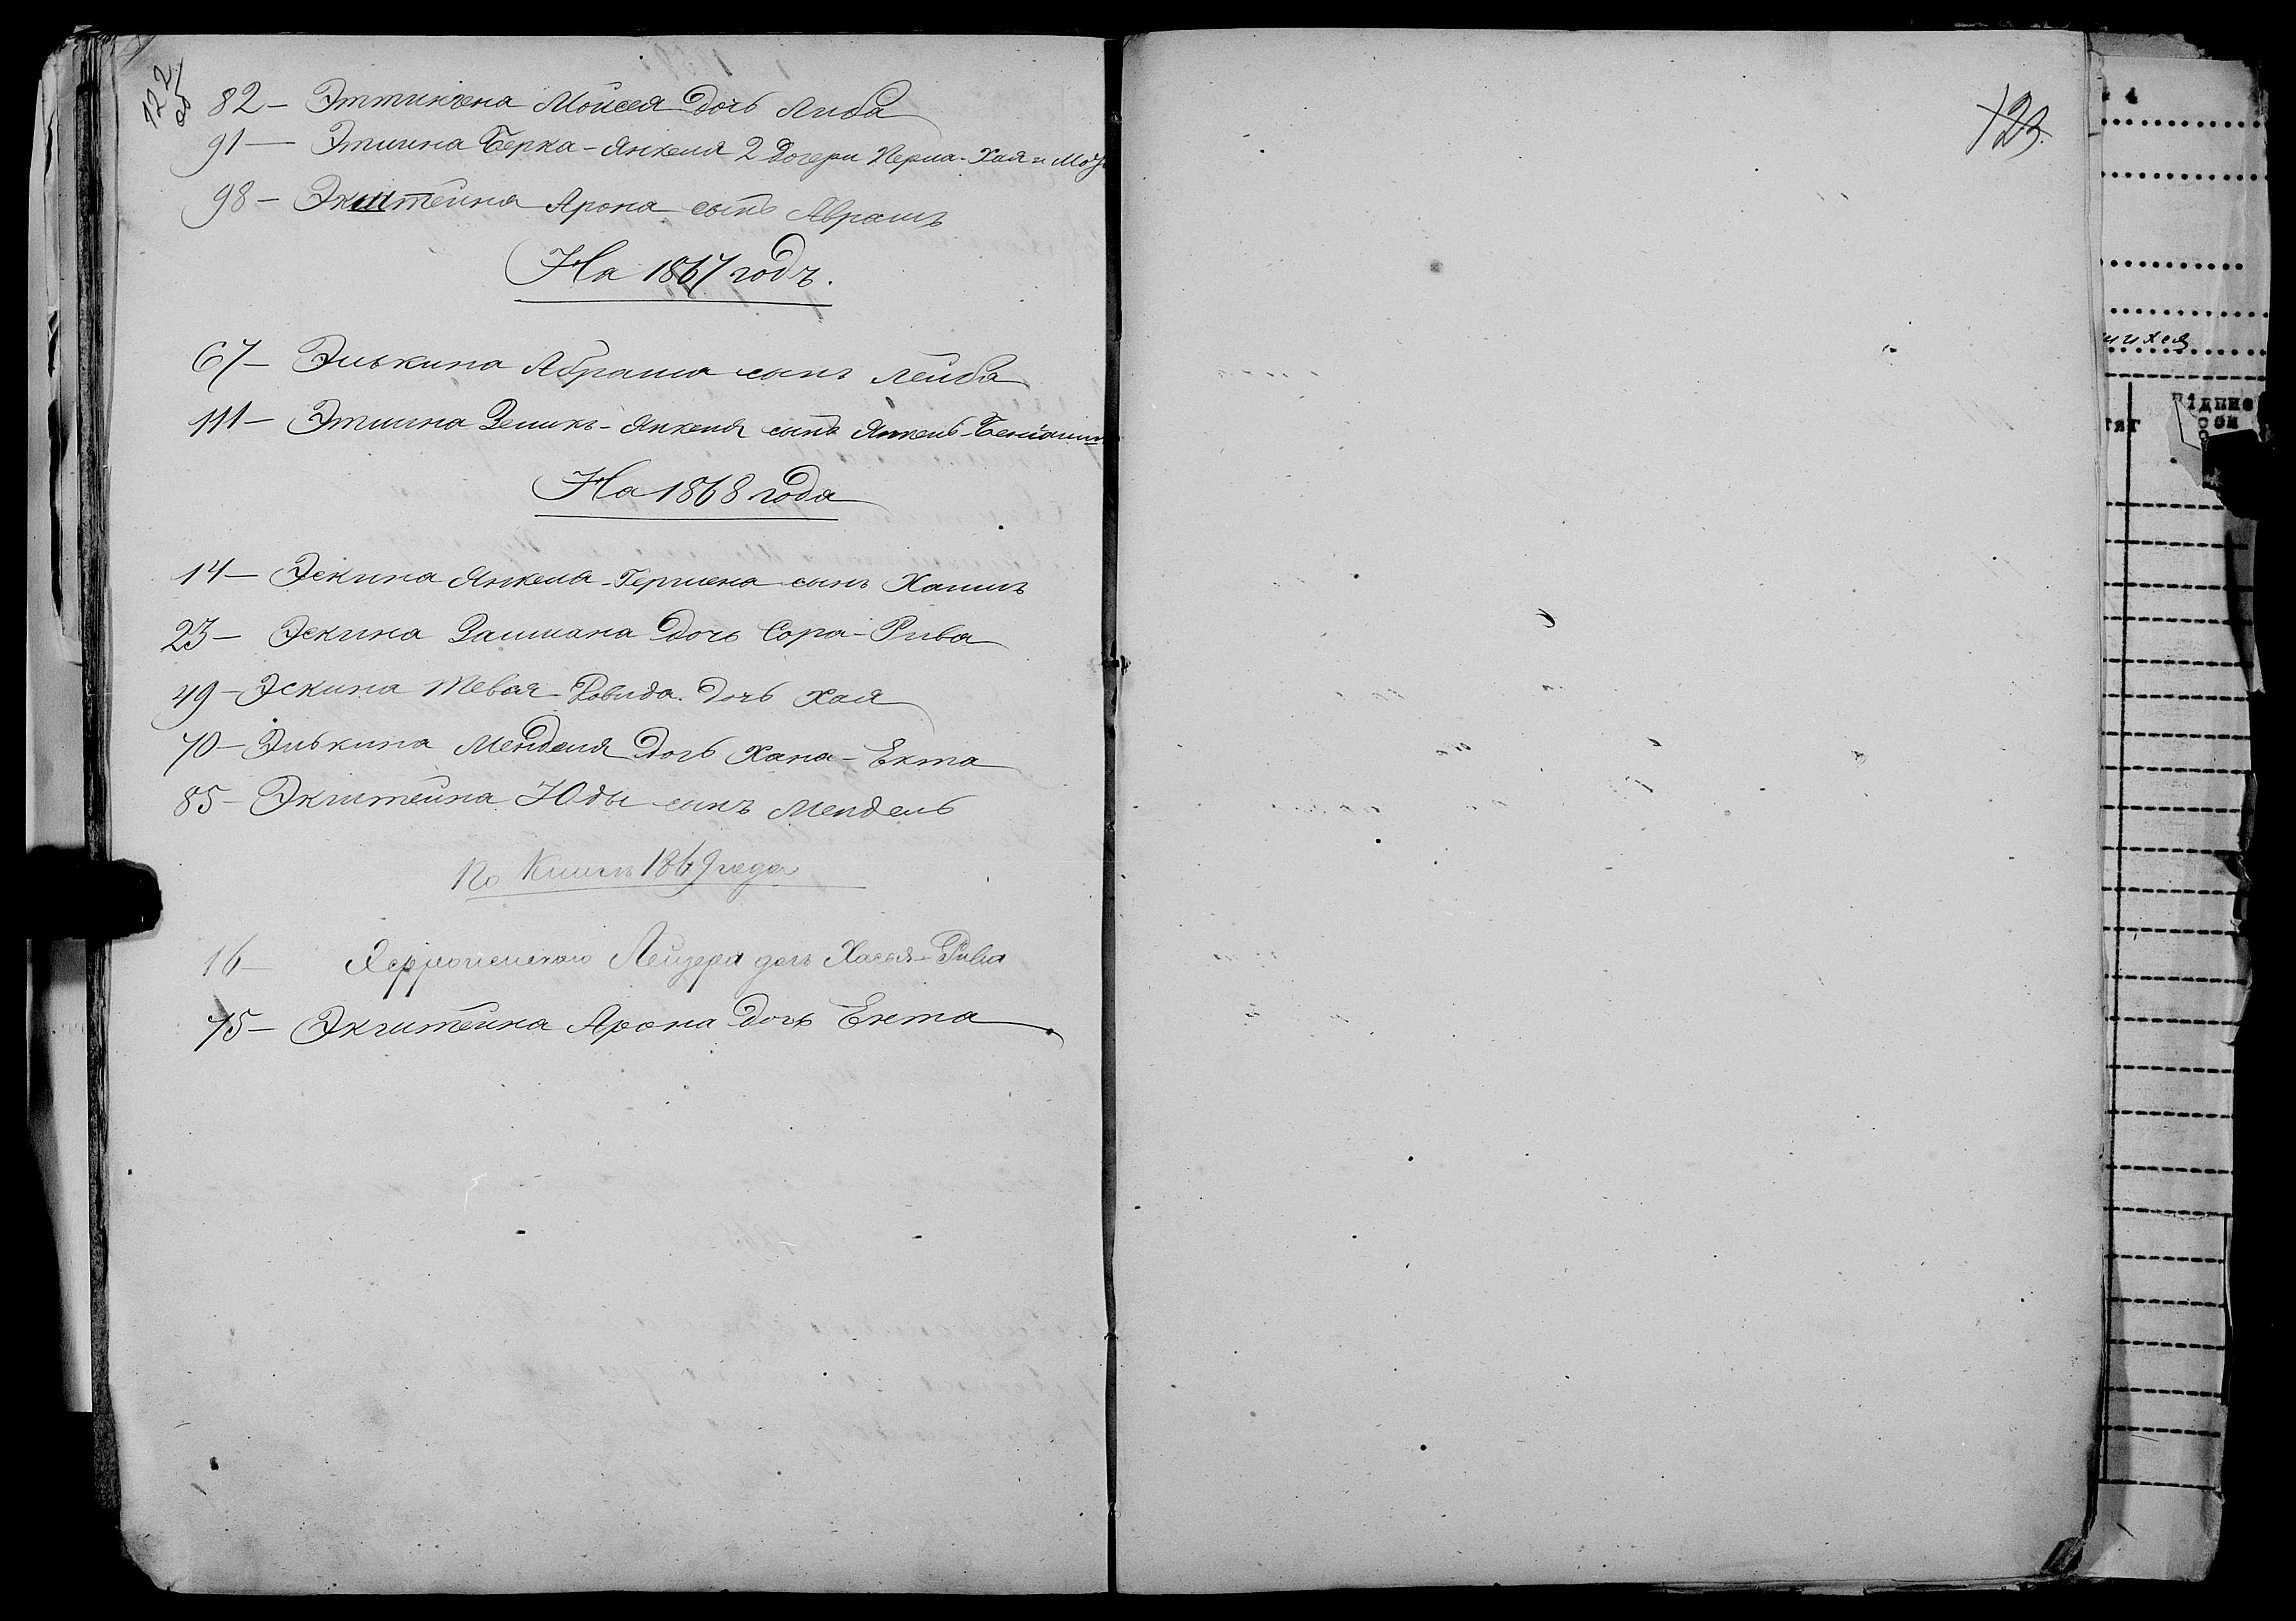 122
об
82 — Эттингена Мойсея дочь Либа
91 — Этина Берка-Янкеля 2 дочери Перла-Хая и
98 — Экштейна Арона сынъ Абрамъ
На 1867 годъ.
67 — Элькина Абрама сынъ Лейба
111 — Этина Зеликъ-Янкеля сынъ Янкель-Беніамин
На 1868 года
14 — Эскина Янкеля-Гершена сынъ Хаимъ
23 — Эскина Залмана дочь Сора-Рива
49 — Эскина Тевья-Довида дочь Хая
70 — Элькина Менделя дочь Хана-Екта
85 — Экштейна Юды сынъ Мендель
По Книгъ 1869 года
16 — Лейзера дочь Хасья-Рива
75 — Экштейна Арона дочь Екта
123.
ихся